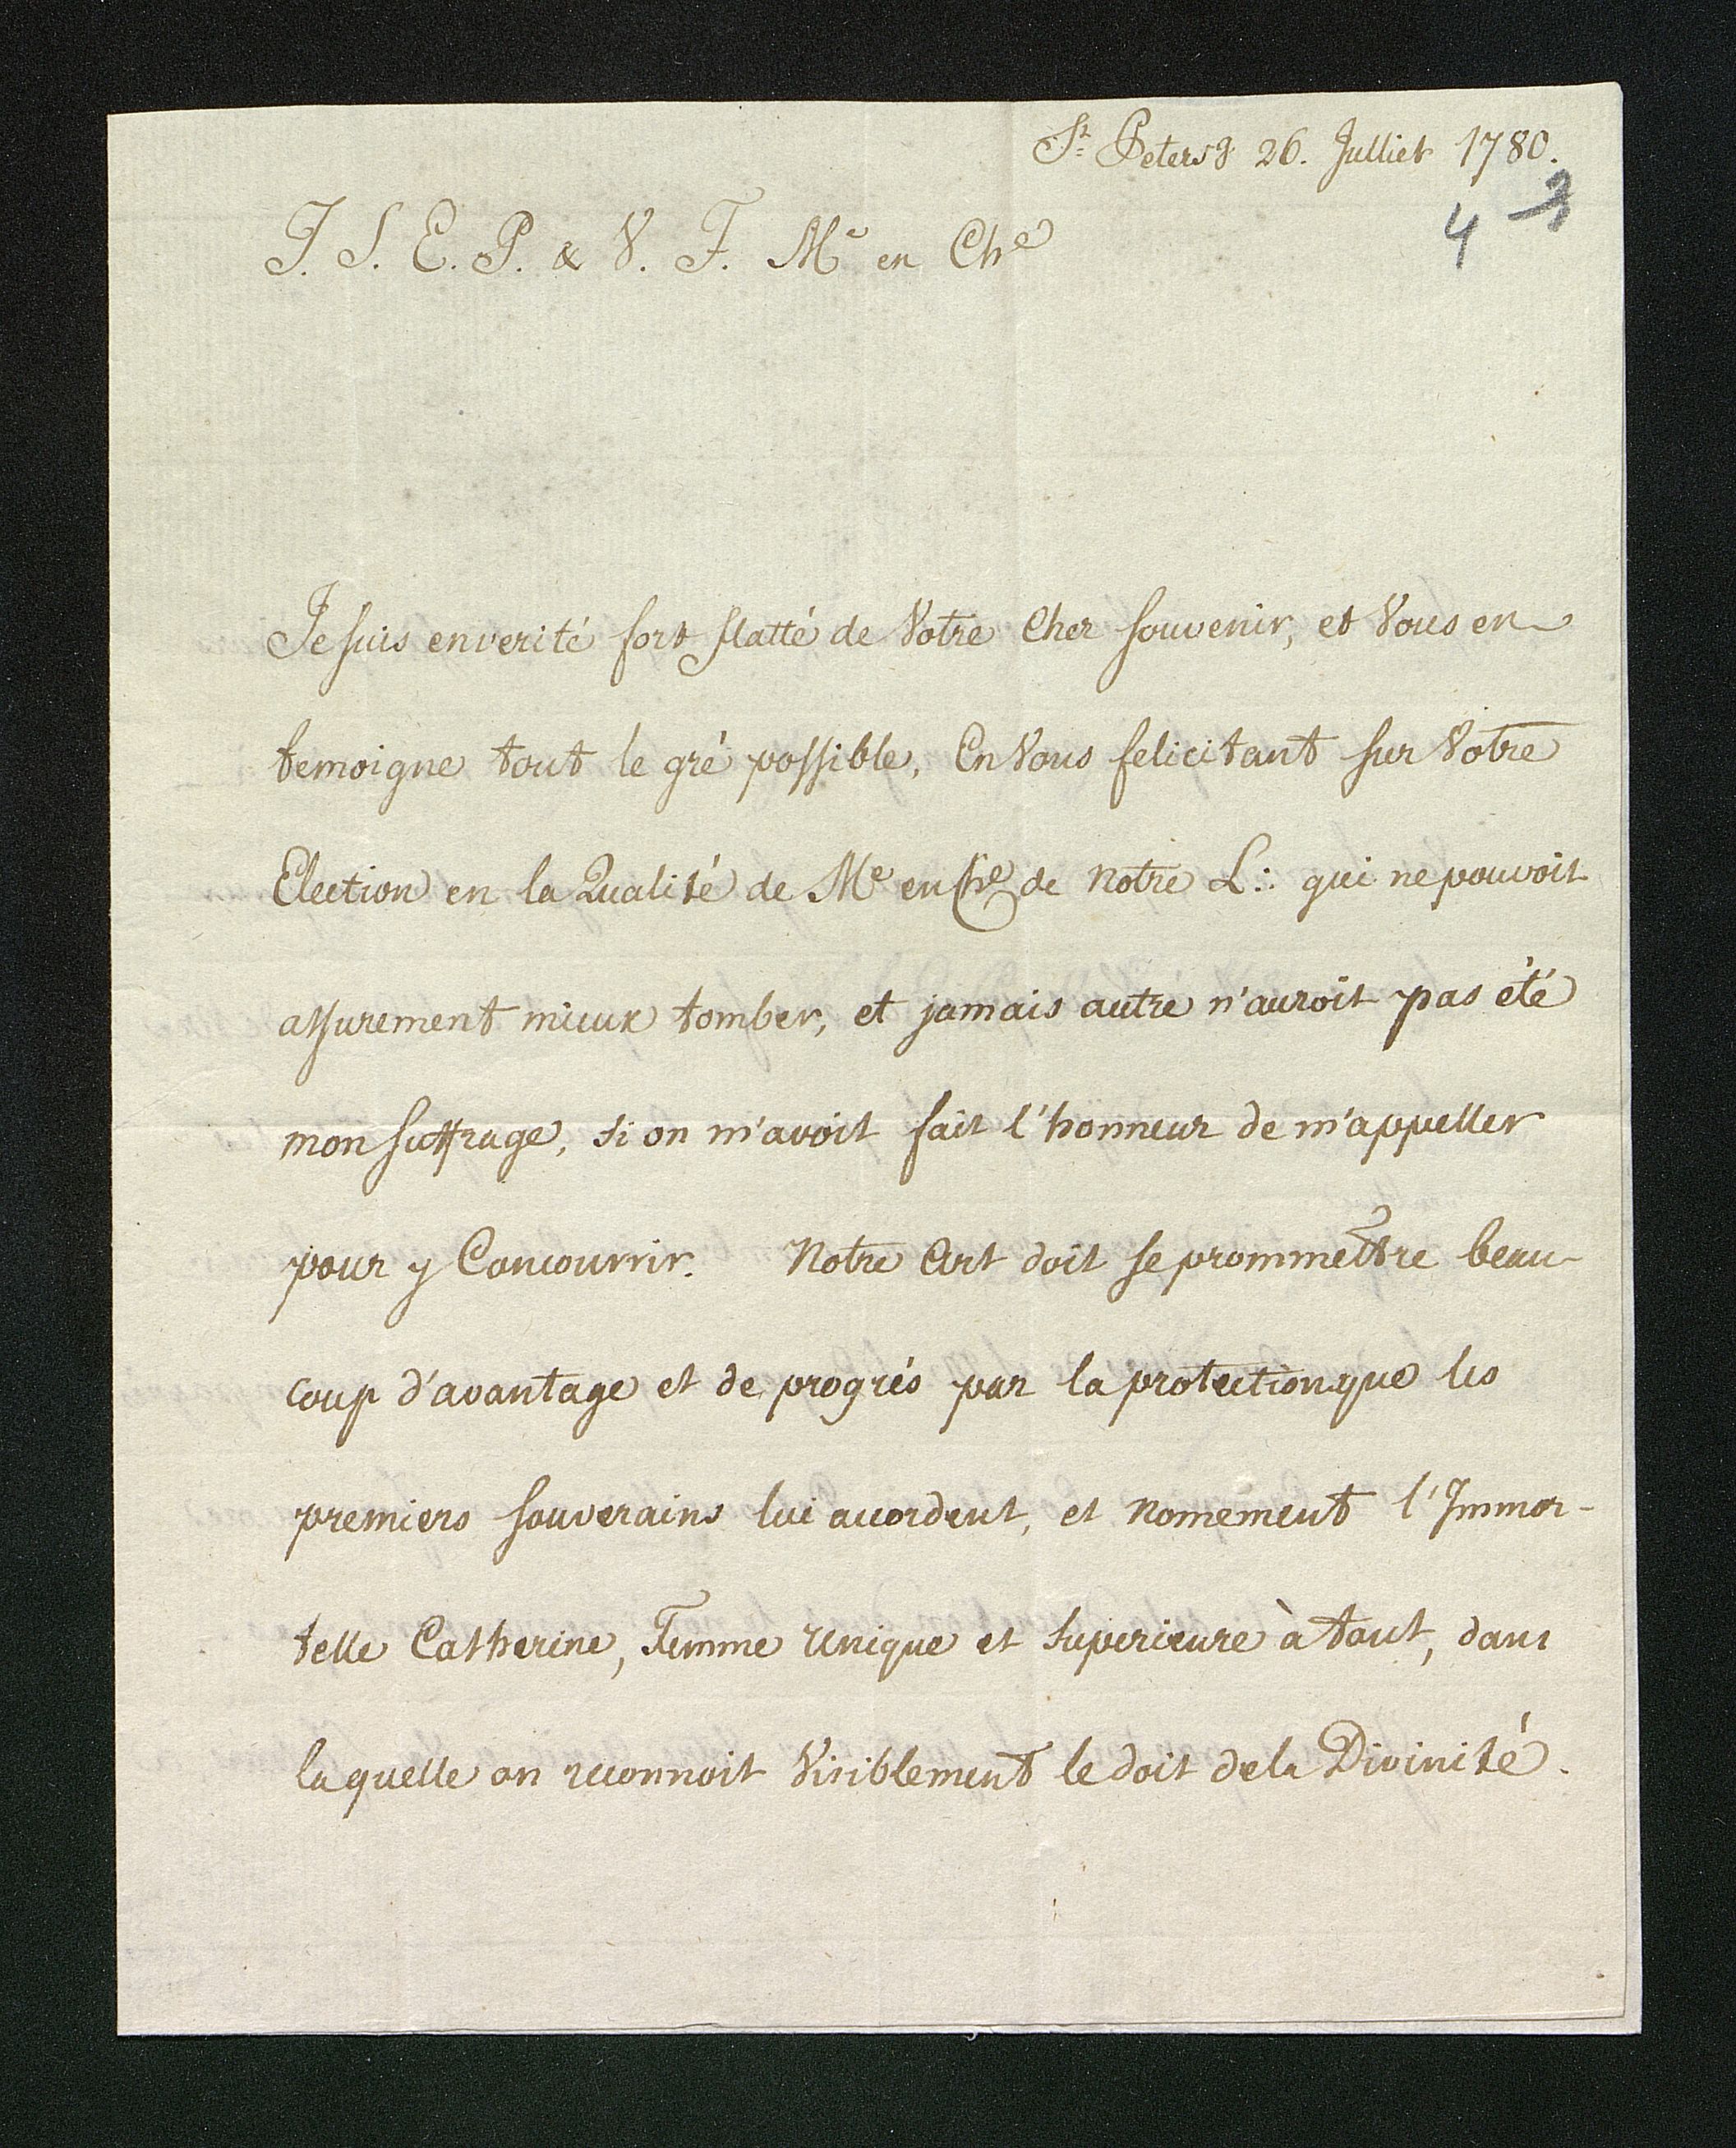 St. Petersg 26. Julliet 1780.
4 3
J. S. E. P. & V. F. Me en Che
Je suis enverité fort flatté de Votre Cher souvenir, et Vous en
temoigne tout le gré possible, En Vous felicitant sur Votre
Election en la Qualité de Me en Che de Notre L∴ qui ne pouvoit
assurement mieux tomber, et jamais autre n'auroit pas été
mon suffrage, si on m'avoit fait l'honneur de m'appeller
pour y Concourrir. Notre Art doit se prommettre beau-
coup d'avantage et de progrés par la protection que les
premiers souverains lui accordent, et nomement l'Immor-
telle Catherine, Femme Unique et Superieure à tout, dans
laquelle on reconnoit Visiblement le doit dela Divinité.